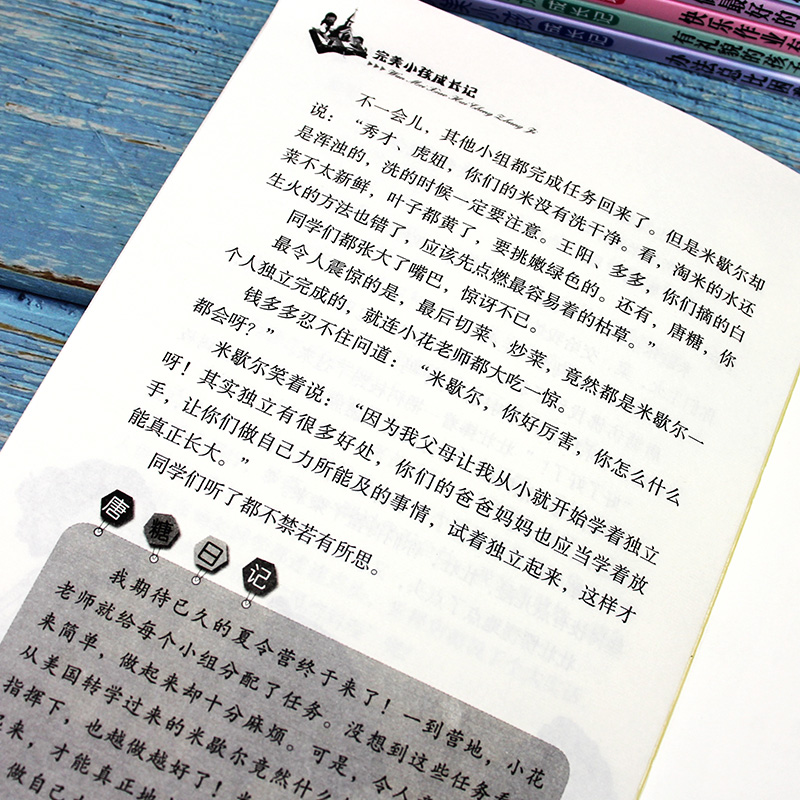 成长记
成长记
最好的
快乐作业
完美小孩成长记
Wan Mei Xiao Hai Cheng Zhang Ji
不一会儿，其他小组都完成任务回来了。但是米歇尔却
说：“秀才、虎妞，你们的米没有洗干净。看，淘米的水还
是浑浊的，洗的时候一定要注意。王阳、多多，你们摘的白
菜不太新鲜，叶子都黄了，要挑嫩绿色的。还有，唐糖，你
生火的方法也错了，应该先点燃最容易着的枯草。”
同学们都张大了嘴巴，惊讶不已。
最令人震惊的是，最后切菜、炒菜，竟然都是米歇尔一
个人独立完成的，就连小花老师都大吃一惊。
钱多多忍不住问道：“米歇尔，你好厉害，你怎么什么
都会呀？”
米歇尔笑着说：“因为我父母让我从小就开始学着独立
呀！其实独立有很多好处，你们的爸爸妈妈也应当学着放
手，让你们做自己力所能及的事情，试着独立起来，这样才
能真正长大。”
同学们听了都不禁若有所思。
唐糖日记
我期待已久的夏令营终于来了！一到营地，小花
老师就给每个小组分配了任务。没想到这些任务看
来简单，做起来却十分麻烦。可是，令人
从美国转学过来的米歇尔竟然什么
指挥下，也越做越好了！
来，才能真正地
做自己